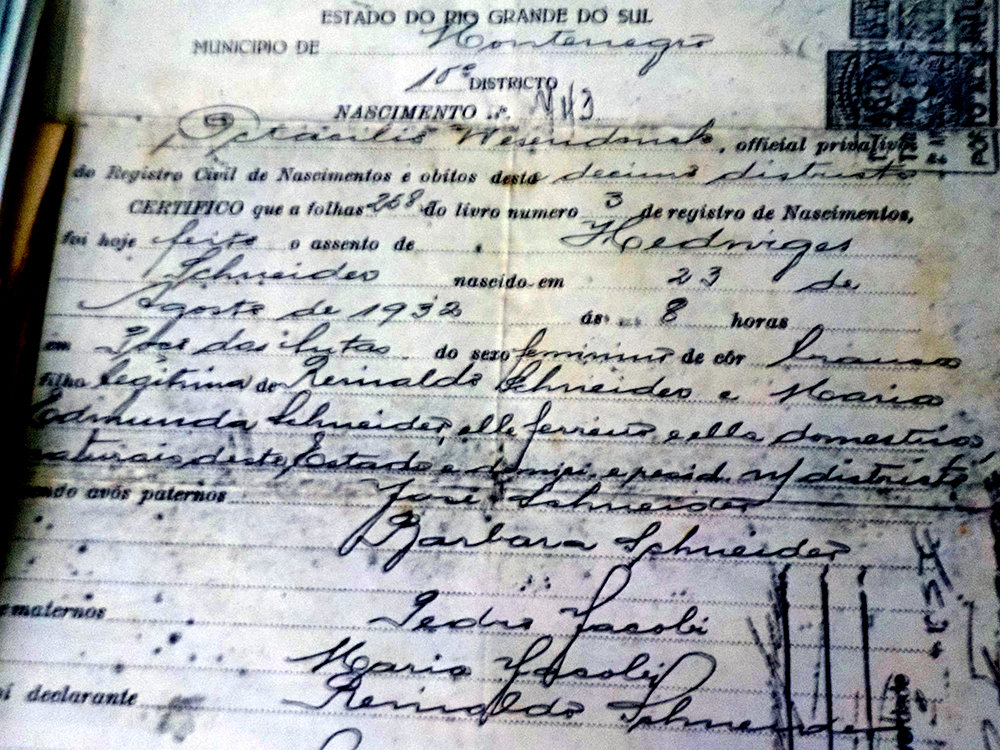 ESTADO DO RIO GRANDE DO SUL
MUNICIPIO DE Montenegro
10º DISTRICTO
NASCIMENTO
Octacilio Wesendonck, official privativo
do Registro Civil de Nascimentos e obitos deste decimo districto
CERTIFICO que a folhas 268 do livro numero 3 de registro de Nascimentos,
foi hoje feito o assento de Hedwiges
Schneider nascido em 23 de
Agosto de 1932 ás 8 horas
em do sexo feminino de côr branca
filho legitima de Reinaldo Schneider e Maria
Edmunda Schneider, elle ferreiro e ella domestica,
naturais deste Estado e resid. n/ districto
avós paternos José Schneider
Barbara Schneider
maternos Pedro Jacobi
Maria Jacobi
declarante Reinaldo Schneider